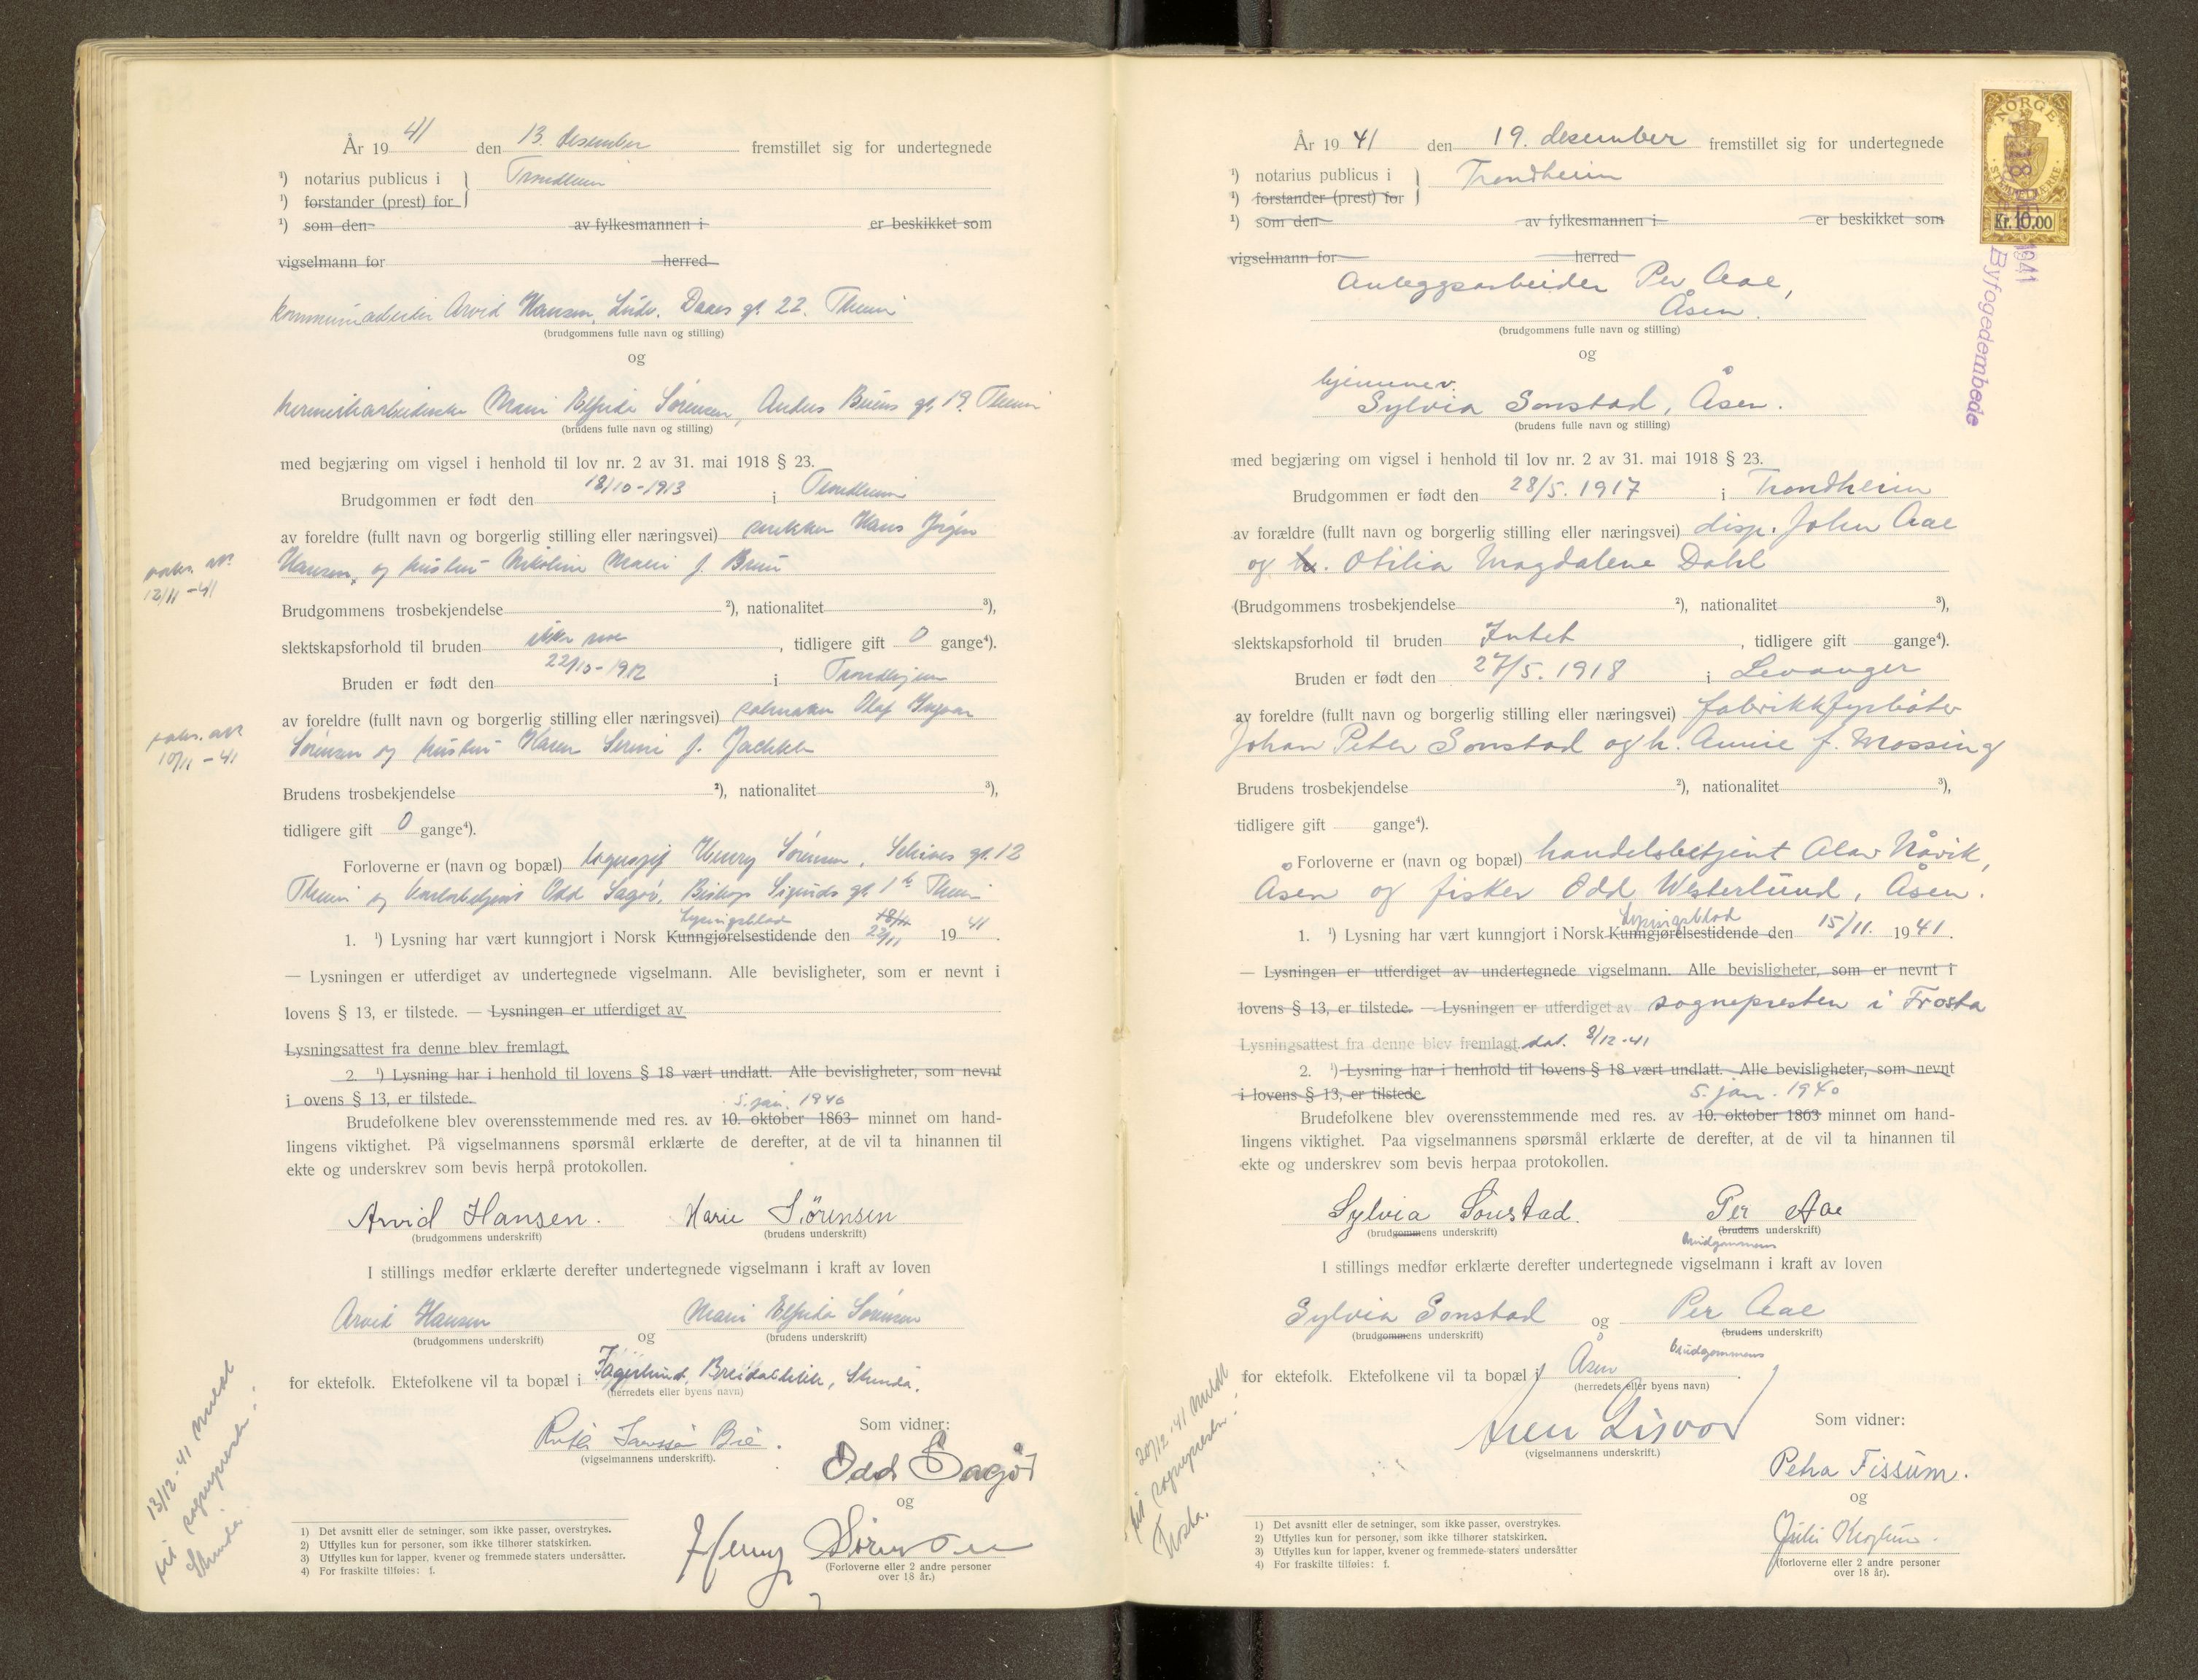 År 19 41 den 13. desember fremstillet sig for undertegnede
¹) notarius publicus i } Trondheim
¹) forstander (prest) for
¹) som den av fylkesmannen i er beskikket som
vigselmann for herred
kommunearbeider Arvid Hansen, Ludv. Daaes gt. 22. Theim
(brudgommens fulle navn og stilling)
og
hermetikarbeiderske Marie Elfrida Sørensen, Anders Buens gt. 19. Theim
(brudens fulle navn og stilling)
med begjæring om vigsel i henhold til lov nr. 2 av 31. mai 1918 § 23.
Brudgommen er født den 18/10-1913 i Trondheim
av foreldre (fullt navn og borgerlig stilling eller næringsvei) snekker Hans Jørgen
Hansen, og hustru Nikoline Marie f. Bruu
vaks. att.
12/11-41
Brudgommens trosbekjendelse ²), nationalitet ³),
slektskapsforhold til bruden ikke noe, tidligere gift 0 gange⁴).
Bruden er født den 22/10-1912 i Trondhjem
av foreldre (fullt navn og borgerlig stilling eller næringsvei) Olaf Ingvar
Sørensen og hustru Karen f.
vaks. att
10/11-41
Brudens trosbekjendelse ²), nationalitet ³),
tidligere gift 0 gange⁴).
Forloverne er (navn og bopæl) Henry Sørensen, Schives gt. 12
Theim og Odd Sagør, Biskop Sigurds gt. 1 b Theim
Lysningsblad 18/11
1. ¹) Lysning har vært kunngjort i Norsk Kunngjørelsestidende den 22/11 19 41.
— Lysningen er utferdiget av undertegnede vigselmann. Alle bevisligheter, som er nevnt i
lovens § 13, er tilstede. — Lysningen er utferdiget av
Lysningsattest fra denne blev fremlagt.
2. ¹) Lysning har i henhold til lovens § 18 vært undlatt. Alle bevisligheter, som nevnt
i ovens § 13, er tilstede.
5. jan. 1940
Brudefolkene blev overensstemmende med res. av 10. oktober 1863 minnet om hand-
lingens viktighet. På vigselmannens spørsmål erklærte de derefter, at de vil ta hinannen til
ekte og underskrev som bevis herpå protokollen.
Arvid Hansen. Marie Sörensen
(brudgommens underskrift) (brudens underskrift)
I stillings medfør erklærte derefter undertegnede vigselmann i kraft av loven
Arvid Hansen og Marie Elfrida Sørensen
(brudgommens underskrift) (brudens underskrift)
for ektefolk. Ektefolkene vil ta bopæl i Fagerlund, Breidablikk, Strinda.
(herredets eller byens navn)
Som vidner:
(vigselmannens underskrift).
Odd Sagør
og
Henry Sørensen
(Forloverne eller 2 andre personer
over 18 år.)
13/12-41 meldt
til sogneprest i
Strinda
1) Det avsnitt eller de setninger, som ikke passer, overstrykes.
2) Utfylles kun for personer, som ikke tilhører statskirken.
3) Utfylles kun for lapper, kvener og fremmede staters undersåtter.
4) For fraskilte tilføies: f.
År 19 41 den 19. desember fremstillet sig for undertegnede
¹) notarius publicus i } Trondheim
¹) forstander (prest) for
¹) som den av fylkesmannen i er beskikket som
vigselmann for herred
Anleggsarbeider Per Aae,
Åsen.
(brudgommens fulle navn og stilling)
og
hjemmev.
Sylvia Sonstad, Åsen.
(brudens fulle navn og stilling)
NORGE
STEMPELMERKE
Kr. 10.00
18 DES 1941
Byfogedembede
med begjæring om vigsel i henhold til lov nr. 2 av 31. mai 1918 § 23.
Brudgommen er født den 28/5. 1917 i Trondheim
av forældre (fullt navn og borgerlig stilling eller næringsvei) disp. John Aae
og h. Otilia Magdalene Dahl
(Brudgommens trosbekjendelse ²), nationalitet ³),
slektskapsforhold til bruden Intet, tidligere gift gange⁴).
Bruden er født den 27/5. 1918 i Levanger
av foreldre (fullt navn og borgerlig stilling eller næringsvei) fabrikkfyrbøter
Johan Peter Sonstad og h. Annie f. Mossing
Brudens trosbekjendelse ²), nationalitet ³),
tidligere gift gange⁴).
Forloverne er (navn og bopæl) handelsbetjent Alav Nåvik,
Åsen og fisker Odd Westerlund, Åsen.
Lysningsblad
1. ¹) Lysning har vært kunngjort i Norsk Kunngjørelsestidende den 15/11. 19 41.
— Lysningen er utferdiget av undertegnede vigselmann. Alle bevisligheter, som er nevnt i
lovens § 13, er tilstede. — Lysningen er utferdiget av sognepresten i Frosta
Lysningsattest fra denne blev fremlagt. dat. 8/12-41
2. ¹) Lysning har i henhold til lovens § 18 vært undlatt. Alle bevisligheter, som nevnt
i lovens § 13, er tilstede. 5. jan. 1940
Brudefolkene blev overensstemmende med res. av 10. oktober 1863 minnet om hand-
lingens viktighet. Paa vigselmannens spørsmål erklærte de derefter, at de vil ta hinannen til
ekte og underskrev som bevis herpaa protokollen.
Sylvia Sonstad. Per Aae
(brudgommens underskrift) (brudens underskrift)
brudgommens
I stillings medfør erklærte derefter undertegnede vigselmann i kraft av loven
Sylvia Sonstad og Per Aae
(brudgommens underskrift) (brudens underskrift)
brudgommens
for ektefolk. Ektefolkene vil ta bopæl i Åsen.
(herredets eller byens navn)
Som vidner:
(vigselmannens underskrift.)
Petra Fissum.
og
(forloverne eller 2 andre personer
over 18 år).
20/12-41 meldt
til sogneprest i
Frosta.
1) Det avsnitt eller de setninger, som ikke passer, overstrykes.
2) Utfylles kun for personer, som ikke tilhører statskirken.
3) Utfylles kun for lapper, kvener og fremmede staters undersåtter
4) For fraskilte tilføies: f.